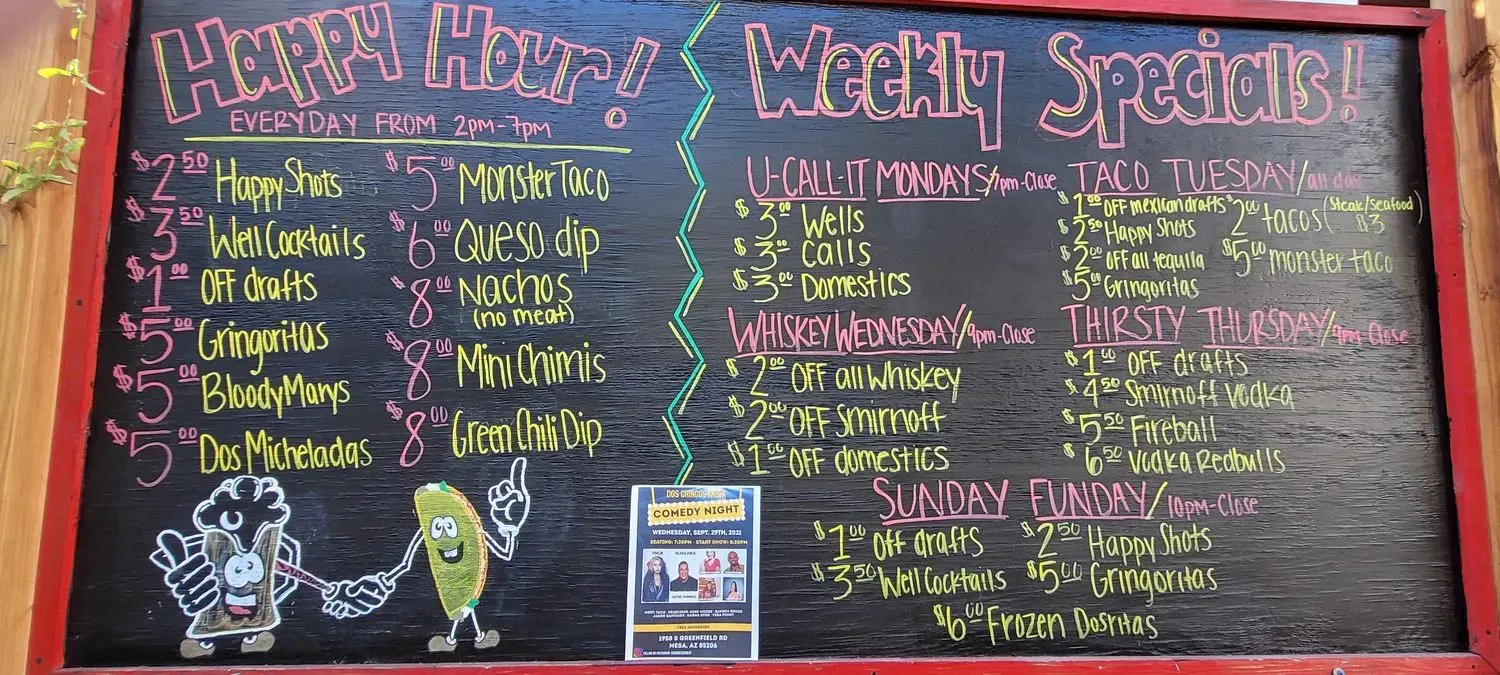 Happy Hour!
EVERYDAY FROM 2PM-7PM
$2.50 Happy Shots
$3.50 Well Cocktails
$1.00 OFF drafts
$5.00 Gringoritas
$5.00 Bloody Marys
$5.00 Dos Micheladas
$5.00 Monster Taco
$6.00 Queso dip
$8.00 Nachos
(no meat)
$8.00 Mini Chimis
$8.00 Green Chili Dip
Weekly Specials!
U-CALL-IT MONDAYS/7pm-Close
$3.00 Wells
$3.00 Calls
$3.00 Domestics
TACO TUESDAY/all day
$1.00 OFF mexican drafts
$2.50 Happy Shots
$2.00 OFF all tequila
$5.00 Gringoritas
$2.00 tacos (Steak/Seafood)
$3
$5.00 monster taco
WHISKEY WEDNESDAY/9pm-Close
$2.00 OFF all Whiskey
$2.00 OFF Smirnoff
$1.00 OFF domestics
THIRSTY THURSDAY/9pm-Close
$1.00 OFF drafts
$4.50 Smirnoff Vodka
$5.50 Fireball
$6.50 Vodka Redbulls
SUNDAY FUNDAY/10pm-Close
$1.00 Off drafts
$3.50 Well Cocktails
$2.50 Happy Shots
$5.00 Gringoritas
$6.00 Frozen Dosritas
DOS GRINGOS MESA
COMEDY NIGHT
WEDNESDAY, SEPT. 29TH, 2021
SEATING: 7:30PM - START SHOW: 8:30PM
TACO HEADLINER
FREE ADMISSION
1958 S GREENFIELD RD
MESA, AZ 85206